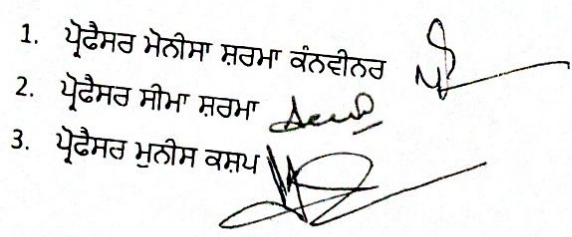 1. ਪ੍ਰੋਫੈਸਰ ਮੋਨੀਸਾ ਸ਼ਰਮਾ ਕੰਨਵੀਨਰ
2. ਪ੍ਰੋਫੈਸਰ ਸੀਮਾ ਸ਼ਰਮਾ
3. ਪ੍ਰੋਫੈਸਰ ਮੁਨੀਸ ਕਸ਼ਪ